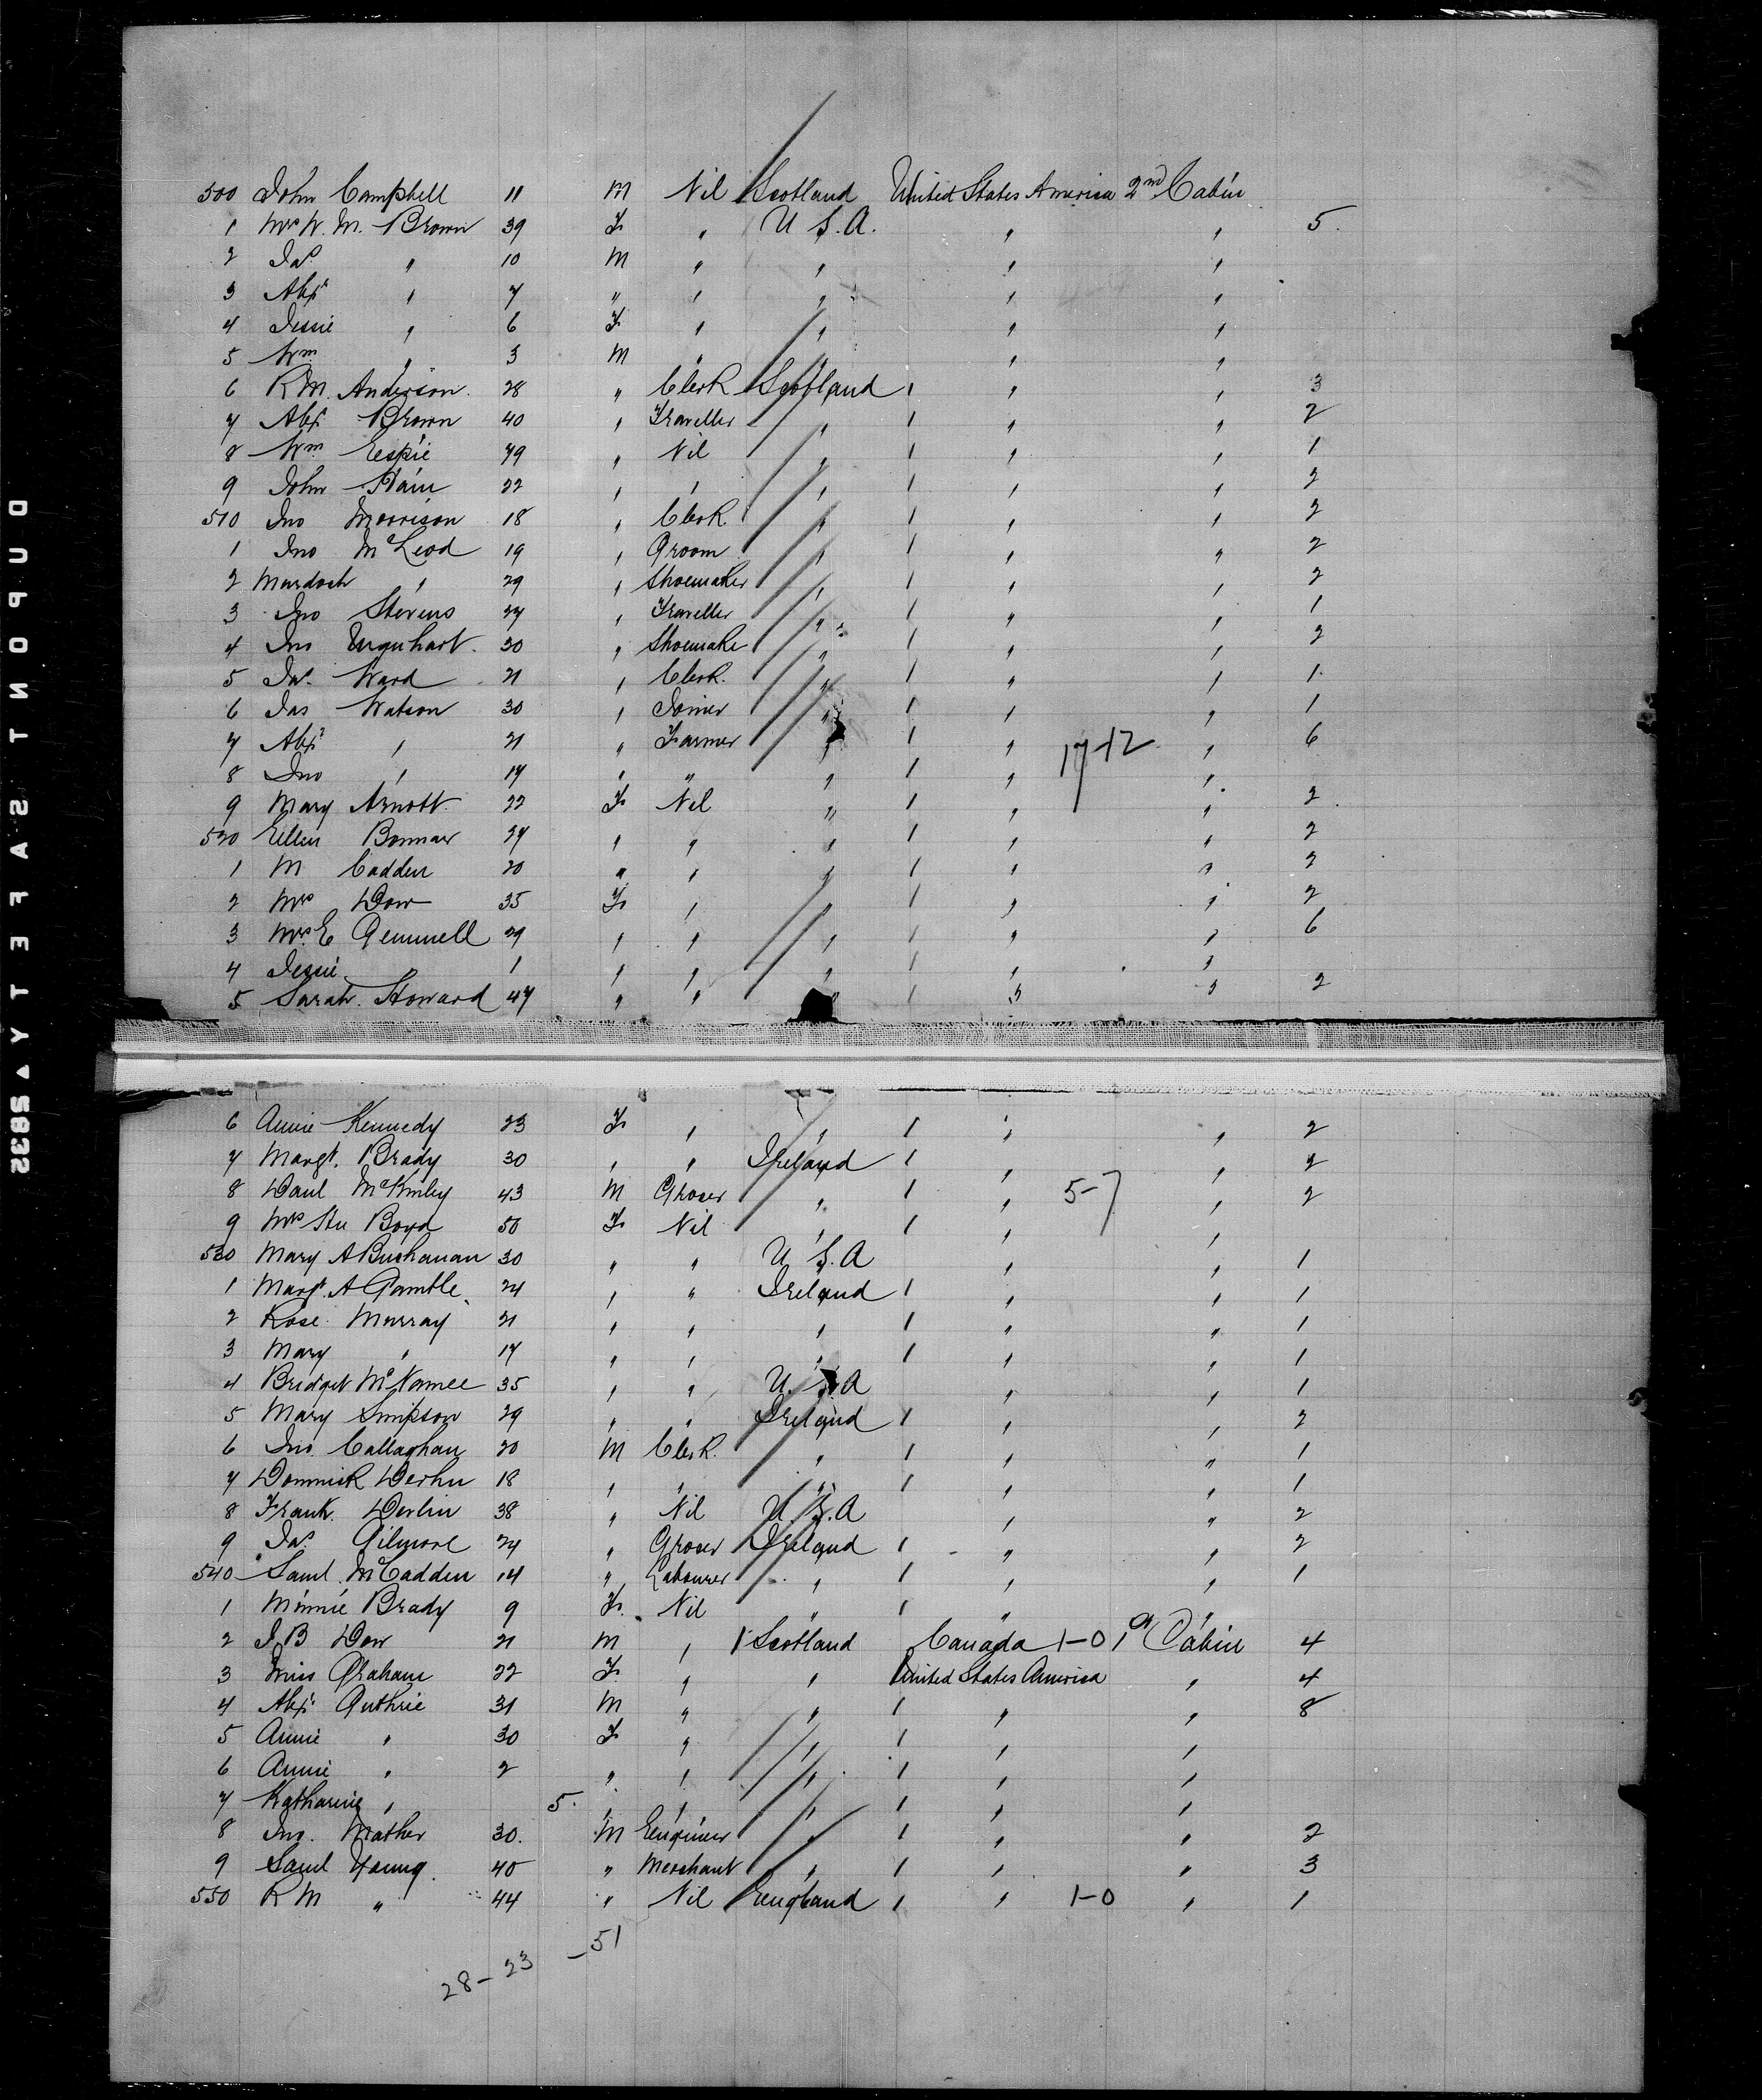 500 John Campbell 11 M Nil Scotland United States America 2nd Cabin
1 Mrs W. M. Brown 39 F " U.S.A. " " 5
2 Jas " 10 M " " " "
3 Alexr " 7 " " " " "
4 Jessie " 6 F " " " "
5 Wm " 3 M " " " "
6 R M. Anderson 28 " Clerk Scotland 1 " " 3
7 Alexr Brown 40 " Traveller " 1 " " 2
8 Wm Espie 79 " Nil " 1 " " 1
9 John 22 " " " 1 " " 2
510 Jno Morrison 18 " Clerk " 1 " " 2
1 Jno McLeod 19 " Groom " 1 " " 2
2 Murdoch " 29 " Shoemaker " 1 " " 2
3 Jno Stevens 27 " Traveller " 1 " " 1
4 Jno Urquhart 30 " Shoemake " 1 " " 2
5 Jas. Ward 21 " Clerk " 1 " " 1
6 Jas Watson 30 " Joiner " 1 " " 1
7 Alexr " 21 " Farmer " 1 " 17-12 " 6
8 Jno " 17 " " " 1 " "
9 Mary Arnott 22 F Nil " 1 " " 2
520 Ellen Bonnar 27 " " " 1 " " 2
1 M Cadden 20 " " " 1 " " 2
2 Mrs Dow 35 F " " 1 " " 2
3 Mrs E Gemmell 29 " " " 1 " " 6
4 Jessie 1 " " " 1 " "
5 Sarah Howard 47 " " " 1 " " 2
6 Annie Kennedy 23 F " " 1 " " 2
7 Margt. Brady 30 " " Ireland 1 " " 2
8 Danl McKinley 43 M Grocer " 1 " 5-7 " 2
9 Mrs Boyd 50 F Nil " 1 " "
530 Mary A Buchanan 30 " " U.S.A " " 1
1 Margt. A Gamble 24 " " Ireland 1 " " 1
2 Rose Murray 21 " " " 1 " " 1
3 Mary " 17 " " " 1 " " 1
4 Bridget McNamee 35 " " U.S.A " " 1
5 Mary Simpson 29 " " Ireland 1 " " 2
6 Jno. Callaghan 20 M Clerk " 1 " " 1
7 Dominick 18 " " " 1 " " 1
8 Frank Devlin 38 " Nil U.S.A " " 2
9 Jas. Gilmore 24 " Grocer Ireland 1 " " 2
540 Saml McCadden 14 " Labourer " 1 " " 1
1 Minnie Brady 9 F Nil " 1 " "
2 J B Dow 21 M " 1 Scotland Canada 1-0 1st Cabin 4
3 Miss Graham 22 F " " United States America " 4
4 Alexr Guthrie 31 M " " 1 " " 8
5 Annie " 30 F " " 1 " "
6 Annie " 2 " " " 1 " "
7 Katharine " 5 " " " 1 " "
8 Jno. Mather 30 M Engineer " 1 " " 2
9 Saml Young 40 " Merchant " 1 " " 3
550 R M " 44 " Nil England 1 " 1-0 " 1
28-23-51
DUPONT SAFETY 5832